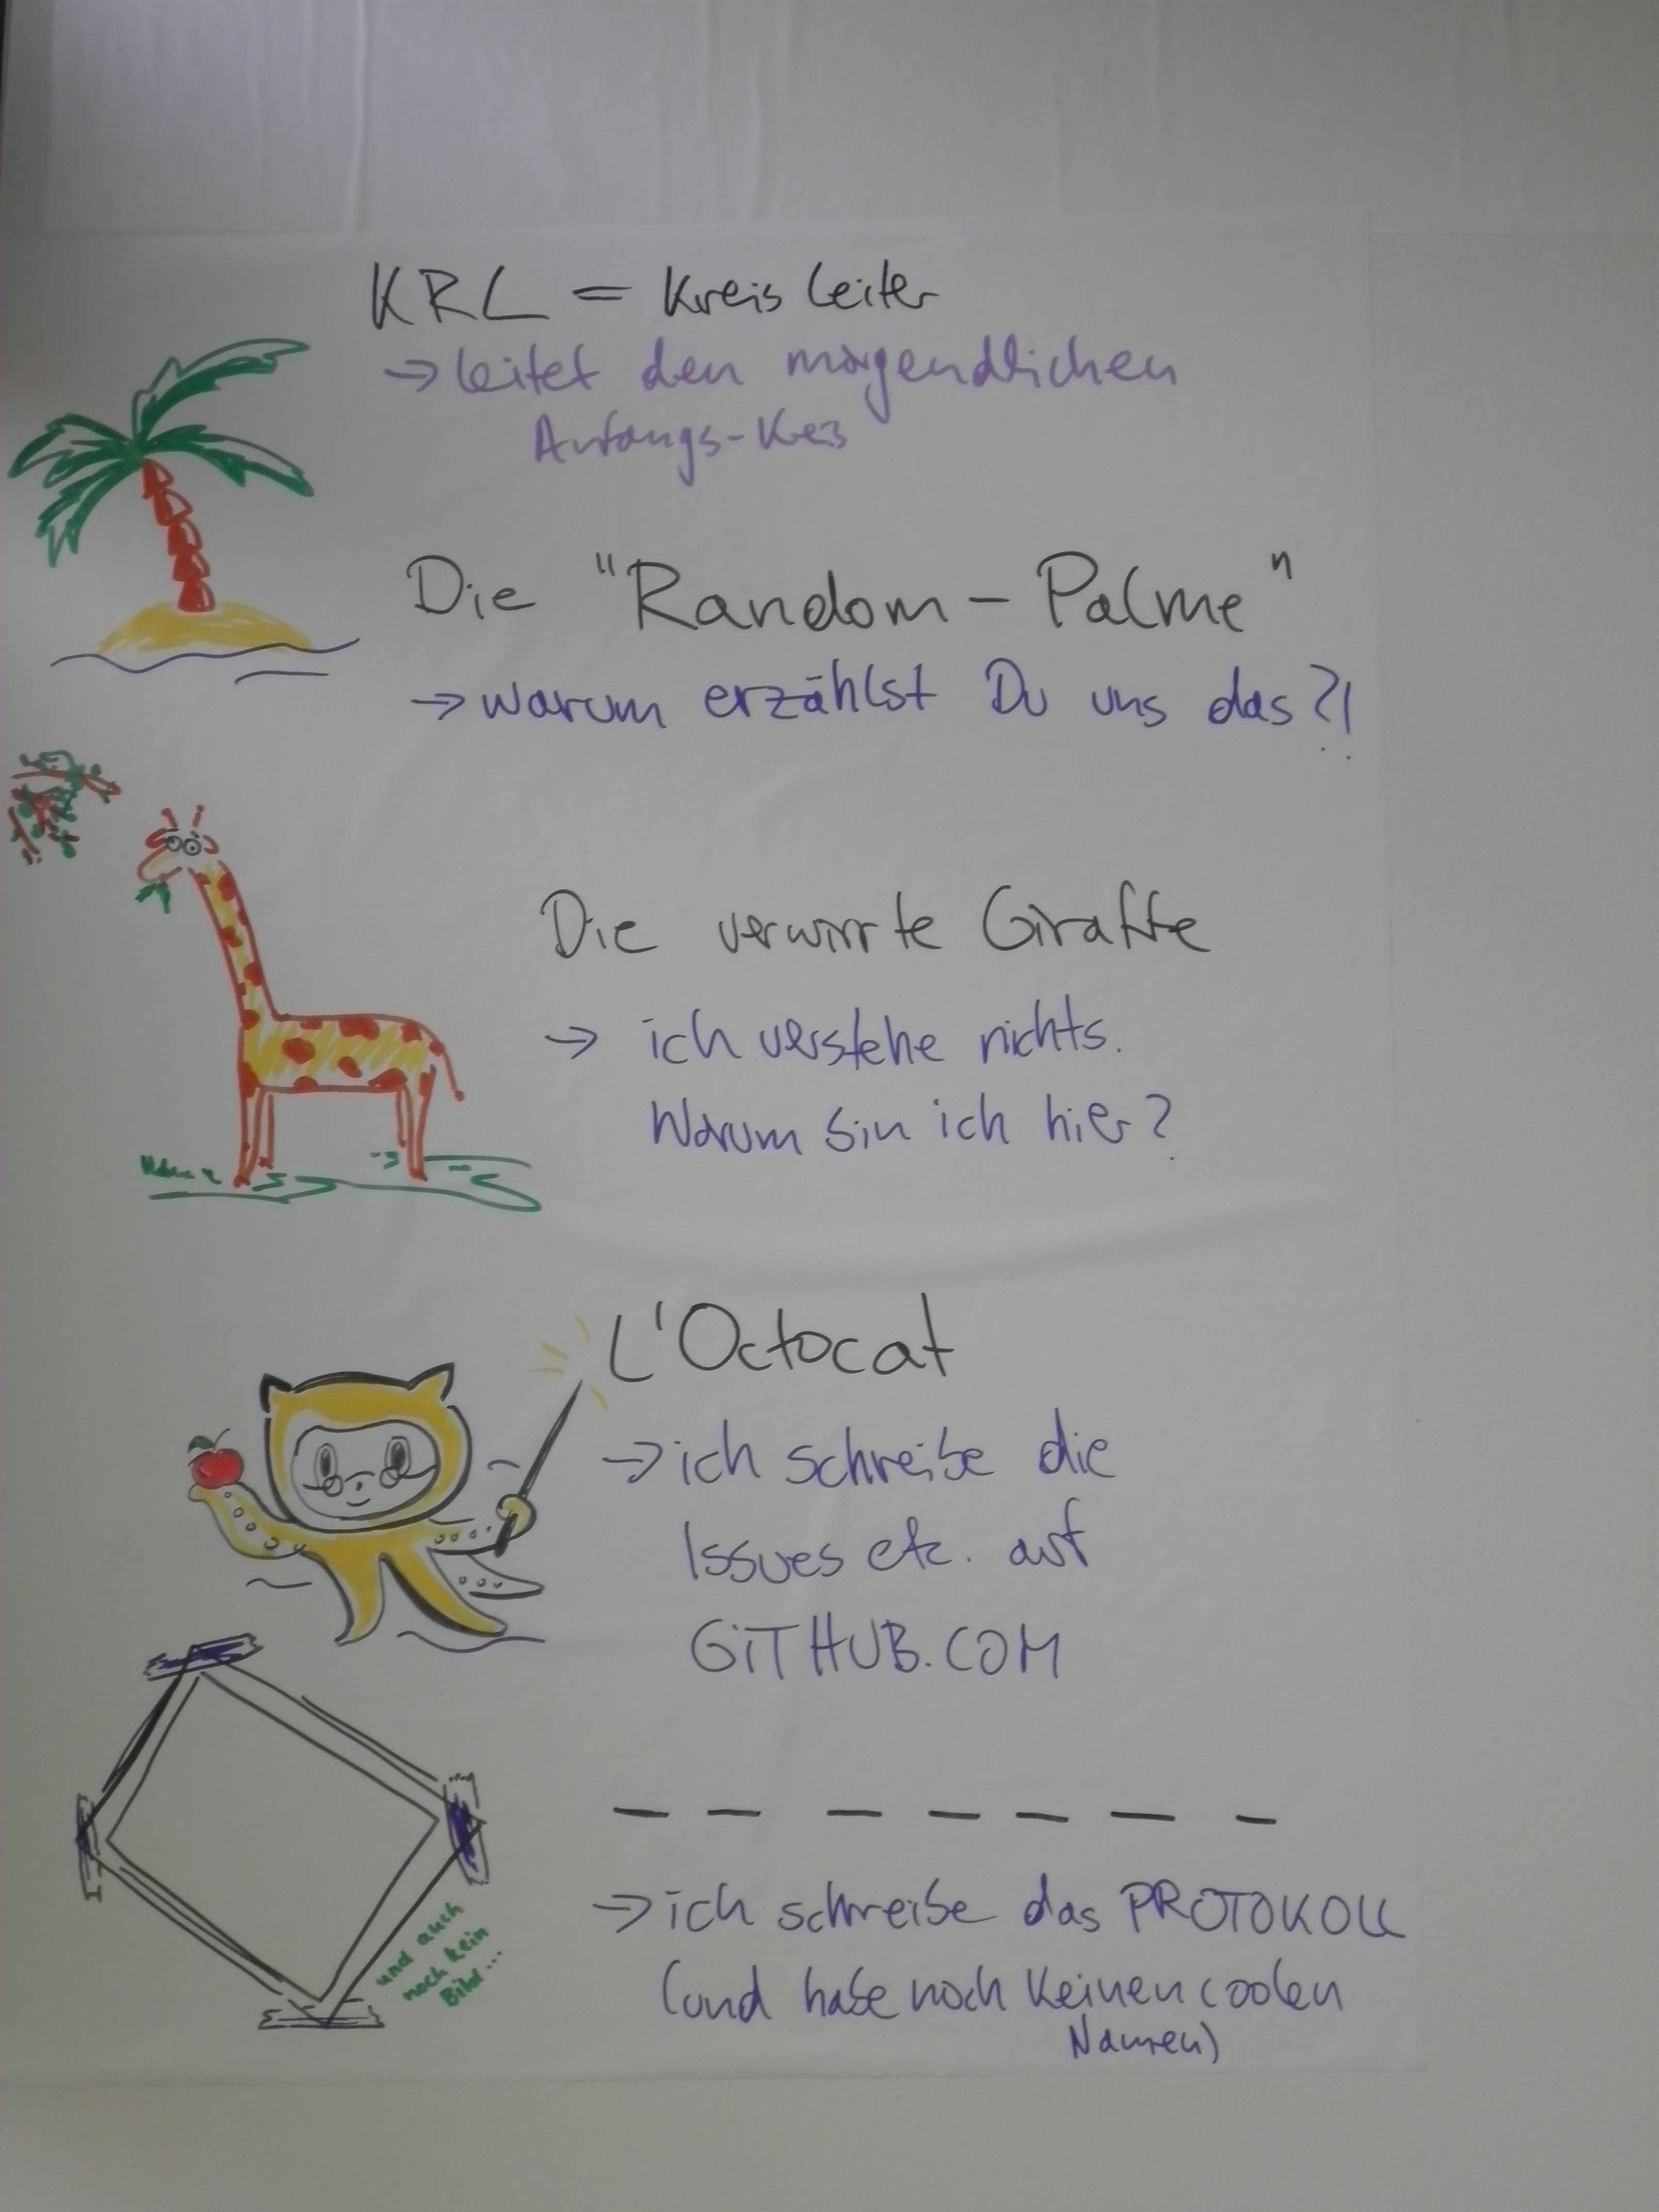 KRL = Kreis Leiter
→ leitet den morgendlichen
Anfangs-Kreis
Die "Random - Palme"
→ warum erzählst Du uns das?!
Die verwirrte Giraffe
→ ich verstehe nichts.
Warum bin ich hier?
L'Octocat
→ ich schreibe die
Issues etc. auf
GiTHUB.COM
_ _ _ _ _ _ _
→ ich schreibe das PROTOKOLL
(und habe noch keinen coolen
Namen)
und auch
noch kein
Bild...